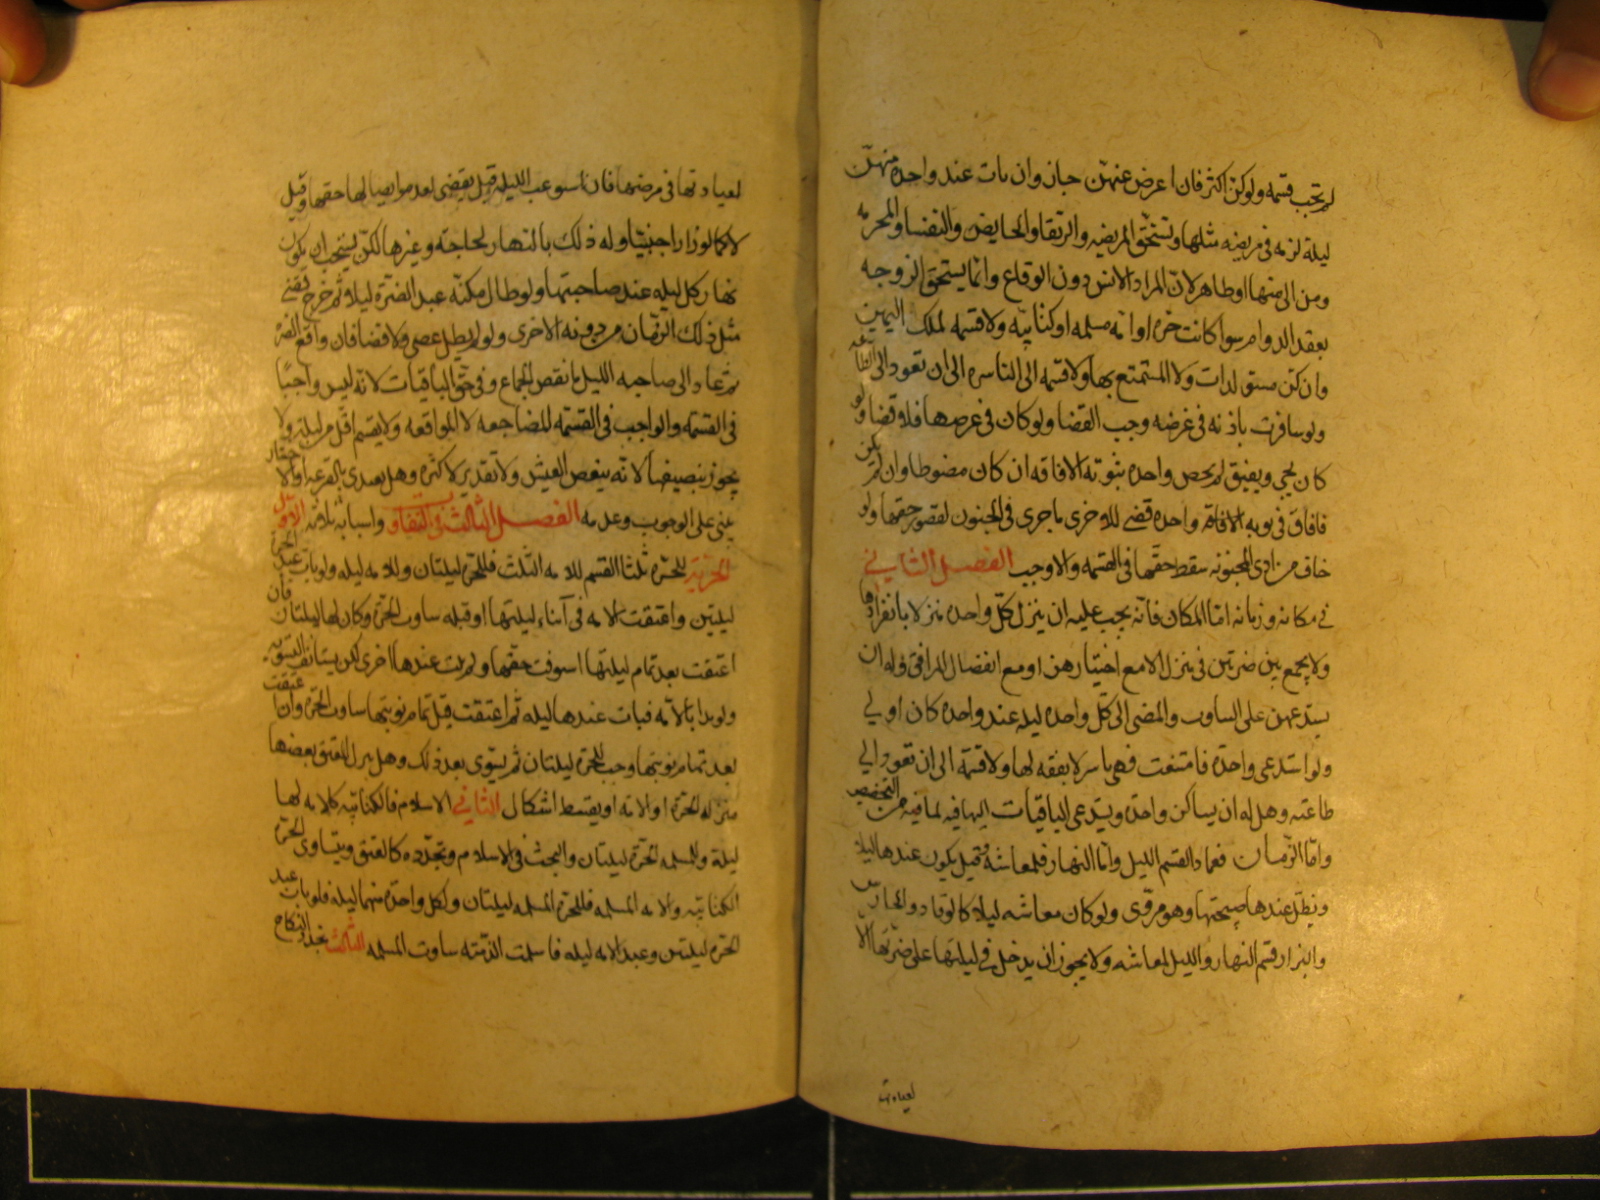 لم تجب قسمة ولو كنّ اكثر فان اعرض عنهنّ جاز وان بات عند واحدة منهنّ
ليلة لزمه في مريضه مثلها وتستحق المريضه والرتقا والحايض والنفسا والمحرمه
ومن الى منها او ظاهر لانّ المراد الانس دون الوقاع وانما يستحق الزوجه
بعقد الدوام سوا كانت حرة او امه مسلمه او كتابيّه ولا قسمه لملك اليمين
وان كن مستولدات ولا المتمتع بها ولا قسمة الى الناشزه الى ان تعود الى الطاعه
ولو سافرت باذنه في غرضه وجب القضا ولو كان في غرضها فلا قضا ولو
كان يجن ويفيق لم يخص واحدة بنوبة الافاقه ان كان مضبوطا وان لم يكن
فافاق في نوبه الافاقة واحده قضى للاخرى ما جرى في الجنون لقصور حقها ولو
خاف من اذى المجنونه سقط حقها في القسمه والا وجب الفصل الثاني
في مكانه وزمانه امّا المكان فانّه يجب عليه ان ينزل كلّ واحده منزلا بانفرادها
ولا يجمع بين ضرتين في منزل الا مع اختيارهن او مع انفصال المرافق وله ان
يستدعيهن على التساوى والمضى الى كلّ واحده ليلة عند واحده كان اولى
ولو استدعى واحدة فامتنعت فهي ناشز لا نفقه لها ولا قسمة الى ان تعود الى
طاعته وهل له ان يساكن واحدة ويستدعى الباقيات اليها فيه لما فيه من التخصيص
وامّا الزّمان فعماد القسم الليل وامّا النهار فلمعاشه وقيل يكون عندها ليلا
ويظل عندها صبيحتها وهو مروى ولو كان معاشه ليلا كالوقاد والحارس
والبزار قسم النهار والليل لمعاشه ولا يجوز ان يدخل في ليلتها على ضرّتها الا
لعيادتها
لعيادتها في مرضها فان استوعب الليله قيل يقضى لعدم ايصالها حقها وقيل
لا كما لو زار اجنبيا وله ذلك بالنهار لحاجته وغيرها لكن يستحب ان يكون
نهار كل ليله عند صاحبتها ولو طال مكثه عند الضرة ليلا ثم خرج قضى
مثل ذلك الزمان من نوبة الاخرى ولو لم يطل عصى ولا قضا فان واقع الضرة
ثم عاد الى صاحبه الليل ما نقص الجماع في حق الباقيات لانه ليس واجبًا
في القسمة والواجب في القسمه المضاجعه لا المواقعه ولا يقسم اقل من ليلة ولا
يجوز تنصيفها لانه ينغص العيش ولا تقدير لاكثره وهل يبدى بالقرعه او الاختيار
يبنى على الوجوب وعدمه الفصل الثالث في التفاوت واسبابه ثلاثة الاوّل
الحرّية للحرّه ثلثا القسم للامه الثلث فللحرّة ليلتان وللامه ليله ولو بات عند الحرّة
ليلتين واعتقت الامه في آناء ليلتها او قبله ساوت الحرّة وكان لها ليلتان فان
اعتقت بعد تمام ليلتها استوفت حقها ولم يبت عندها اخرى لكن يستانف التسويه
ولو بدا بالامه فبات عندها ليله ثم اعتقت قبل تمام نوبتها ساوت الحرّة وان عتقت
بعد تمام نوبتها وجب للحرّة ليلتان ثم يسوّى بعد ذلك وهل ينزل المعتق بعضها
منزله الحرّة او الامه او يقسط اشكال الثاني الاسلام فالكتابيّه كالامه لها
ليلة وللمسلمه الحرّة ليلتان والبحث في الاسلام وتجدّده كالعتق ويتساوى الحرّة
الكتابيّه والامه المسلمه فللحرة المسلمه ليلتان ولكل واحدة منهما ليلة فلو بات عند
الحرّه ليلتين وعند الامه ليله فاسلمت الذمّيّه ساوت المسلمه الثالث تجدد النكاح